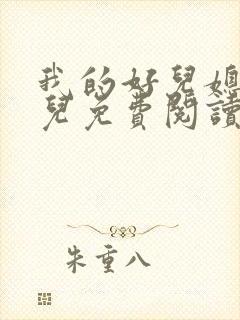 我的好兒媳
兒免費閱讀
朱重八